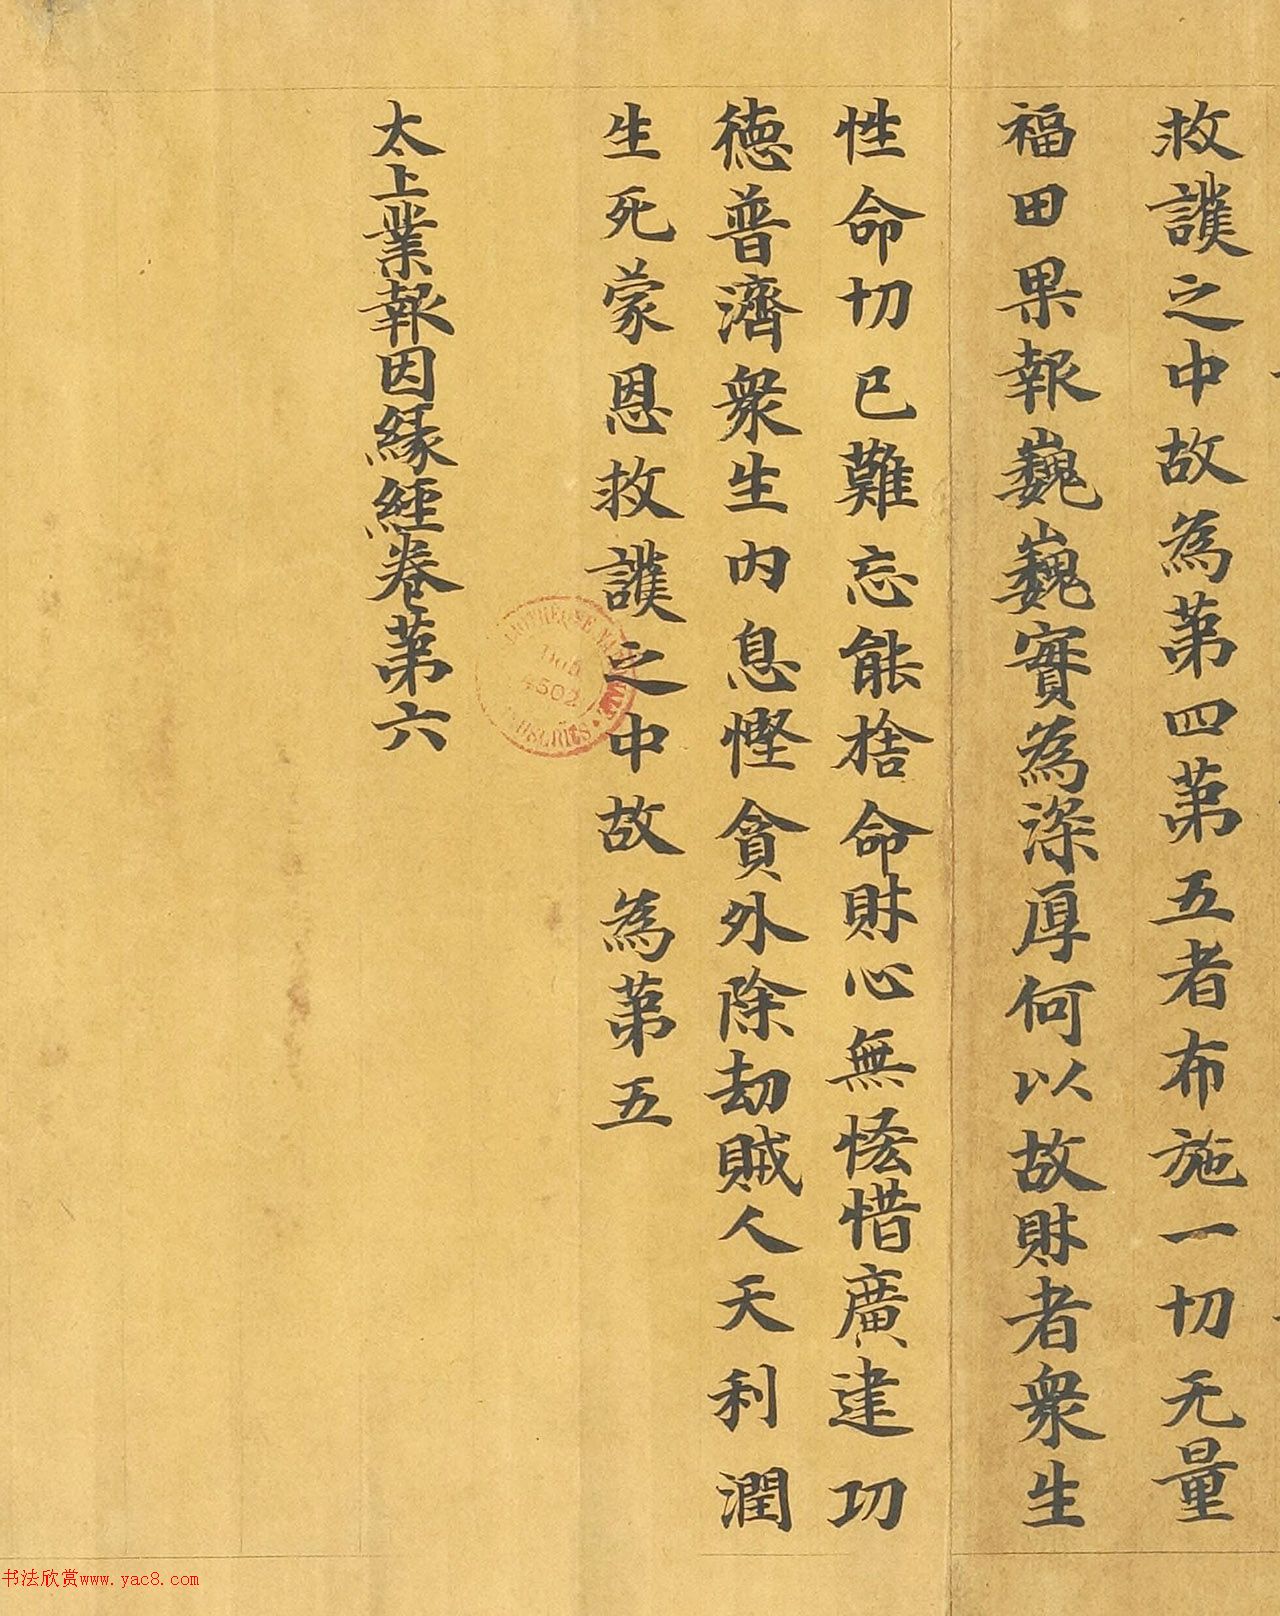 救護之中故為第四第五者布施一切无量
福田果報巍巍實為深厚何以故財者衆生
性命切已難忘能捨命財心無悋惜廣建功
德普濟衆生內息慳貪外除劫賊人天利潤
生死蒙恩救護之中故為第五
太上業報因緣經卷第六
4502
书法欣赏www.yac8.com